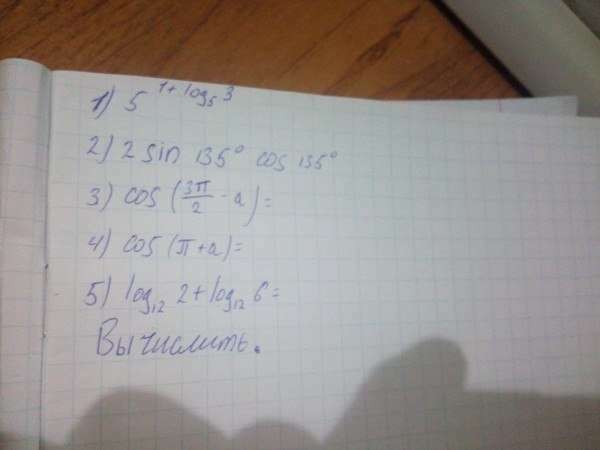 1) 5^(1+log₅3)
2) 2 sin 135° cos 135°
3) cos (3π/2 - a) =
4) cos (π+a) =
5) log₁₂ 2 + log₁₂ 6 =
Вычислить.